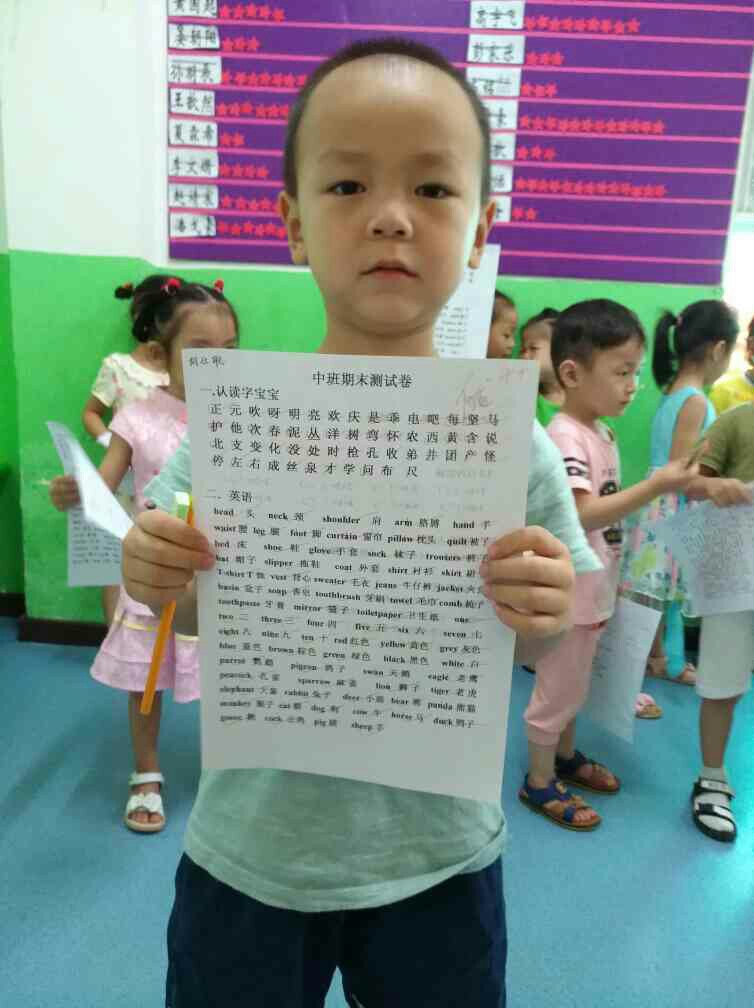 晏朝阳
孙树晨
王歆然
夏霖希
李文娟
中班期末测试卷
一.认读字宝宝
正 元 吹 呀 明 亮 欢 庆 是 乖 电 吧 每 坚 马
护 他 次 春 泥 丛 洋 树 弯 怀 农 西 黄 含 锐
北 支 变 化 没 处 时 枪 孔 收 弟 并 团 产 怪
停 左 右 成 丝 泉 才 学 问 布 尺
二、英语
head 头 neck 颈 shoulder 肩 arm 胳膊 hand 手
waist 腰 leg 腿 foot 脚 curtain 窗帘 pillow 枕头 quilt 被子
bed 床 shoe 鞋 glove 手套 sock 袜子 trousers 裤子
hat 帽子 slipper 拖鞋 coat 外套 shirt 衬衫 skirt
T-shirt T恤 vest 背心 sweater 毛衣 jeans 牛仔裤 jacket 夹克
basin 盆子 soap 香皂 toothbrush 牙刷 towel 毛巾 comb 梳子
toothpaste 牙膏 mirror 镜子 toiletpaper 卫生纸 one
two 二 three 三 four 四 five 五 six 六 seven 七
eight 八 nine 九 ten 十 red 红色 yellow 黄色 grey 灰色
blue 蓝色 brown 棕色 green 绿色 black 黑色 white 白
parrot 鹦鹉 pigeon 鸽子 swan 天鹅 eagle 老鹰
peacock 孔雀 sparrow 麻雀 lion 狮子 tiger 老虎
elephant 大象 rabbit 兔子 deer 小鹿 bear 熊 panda 熊猫
monkey 猴子 cat 猫 dog 狗 cow 牛 horse 马 duck 鸭子
goose 鹅 cock 公鸡 pig 猪 sheep 羊